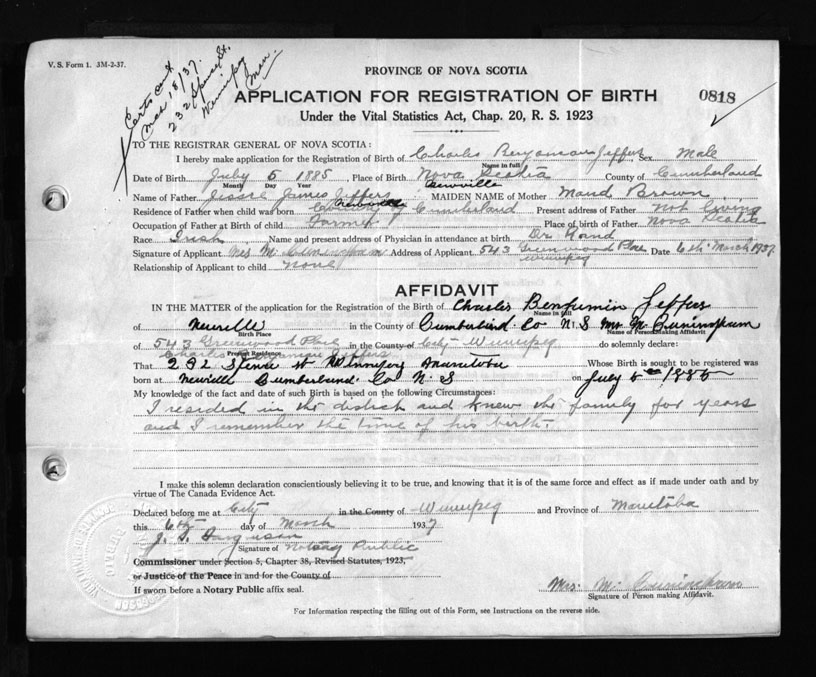 V. S. Form 1. 3M-2-37.
Certs
Mar 18/37.
232 Spence St.
Winnipeg
Man.
PROVINCE OF NOVA SCOTIA
APPLICATION FOR REGISTRATION OF BIRTH
0818
Under the Vital Statistics Act, Chap. 20, R. S. 1923
TO THE REGISTRAR GENERAL OF NOVA SCOTIA:
I hereby make application for the Registration of Birth of Charles Benjaman Jeffers Sex Male
Name in full
Date of Birth July 5 1885, Place of Birth Nova Scotia County of Cumberland
Month Day Year
Name of Father Jesse James Jeffers MAIDEN NAME of Mother Maud Brown
Residence of Father when child was born Cumberland Present address of Father Not living
Occupation of Father at Birth of child Farmer Place of birth of Father Nova Scotia
Race Irish Name and present address of Physician in attendance at birth Dr Hand
Signature of Applicant Mrs M. Cunningham Address of Applicant 543 Greenwood Place Winnipeg Date 6th March 1937.
Relationship of Applicant to child None
AFFIDAVIT
IN THE MATTER of the application for the Registration of the Birth of Charles Benjumin Jeffers
Name in full
of Newville in the County of Cumberland Co N.S Mrs M Cuningham
Birth Place Name of Person making Affidavit
of 543 Greenwood Place in the County of City Winnipeg do solemnly declare:
Present Residence
Charles Benjaman Jeffers
That 232 Spense st Winnipeg Manitoba Whose Birth is sought to be registered was
born at Newville Cumberland Co N. S on July 5th 1885
My knowledge of the fact and date of such Birth is based on the following Circumstances:
I resided in the district and knew the family for years
and I remember the time of his birth.
I make this solemn declaration conscientiously believing it to be true, and knowing that it is of the same force and effect as if made under oath and by
virtue of The Canada Evidence Act.
Declared before me at City in the County of Winnipeg and Province of Manitoba
this 6th day of March 1937
J. S.
Signature of Notary Public
Commissioner under Section 5, Chapter 38, Revised Statutes, 1923,
or Justice of the Peace in and for the County of
If sworn before a Notary Public affix seal.
Mrs. M. Cuningham
Signature of Person making Affidavit.
For Information respecting the filling out of this Form, see Instructions on the reverse side.